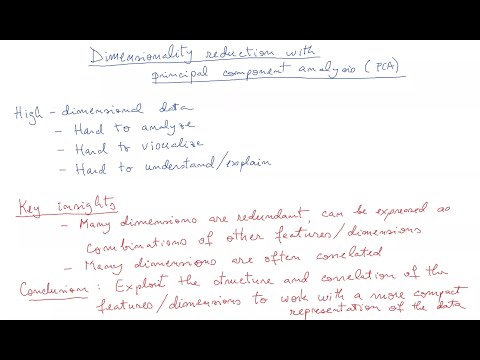 Dimensionality reduction with
principal component analysis (PCA)
High-dimensional data
- Hard to analyze
- Hard to visualize
- Hard to understand/explain
Key insights
- Many dimensions are redundant, can be expressed as
combinations of other features/dimensions
- Many dimensions are often correlated
Conclusion: Exploit the structure and correlation of the
features/dimensions to work with a more compact
representation of the data